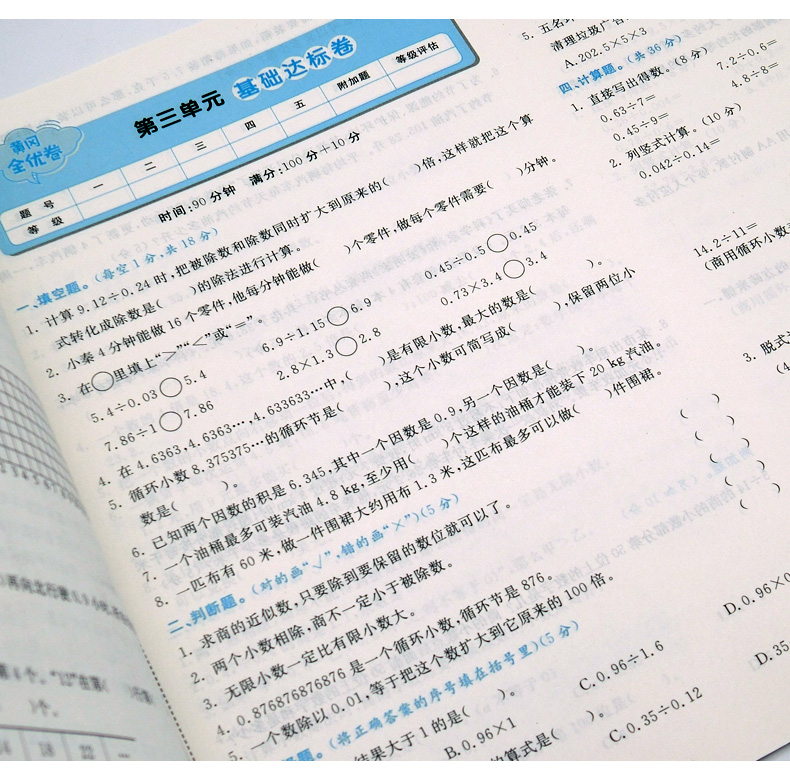 黄冈
全优卷
第三单元 基础达标卷
题号 一 二 三 四 五 附加题 等级评估
等级
时间:90分钟 满分:100分+10分
一、填空题。(每空1分,共18分)
1. 计算9.12÷0.24时,把被除数和除数同时扩大到原来的( )倍,这样就把这个算
式转化成除数是( )的除法进行计算。
2. 小秦4分钟能做16个零件,他每分钟能做( )个零件,做每个零件需要( )分钟。
3. 在○里填上“>”“<”或“=”。
5.4÷0.03○5.4 6.9÷1.15○6.9 0.45÷0.5○0.45
7.86÷1○7.86 2.8×1.3○2.8 0.73×3.4○3.4
4. 在4.6363,4.6363…,4.633633…中,( )是有限小数,最大的数是( )。
5. 循环小数8.375375…的循环节是( ),这个小数可简写成( ),保留两位小
数是( )。
6. 已知两个因数的积是6.345,其中一个因数是0.9,另一个因数是( )。
7. 一个油桶最多可装汽油4.8 kg,至少用( )个这样的油桶才能装下20 kg汽油。
8. 一匹布有60米,做一件围裙大约用布1.3米,这匹布最多可以做( )件围裙。
二、判断题。(对的画“√”,错的画“×”)(5分)
1. 求商的近似数,只要除到要保留的数位就可以了。 ( )
2. 两个小数相除,商不一定小于被除数。 ( )
3. 无限小数一定比有限小数大。 ( )
4. 0.876876876876是一个循环小数,循环节是876。 ( )
5. 一个数除以0.01,等于把这个数扩大到它原来的100倍。 ( )
题。(将正确答案的序号填在括号里)(5分)
结果大于1的是( )。
B.0.96×1 C.0.96÷1.6 D.0.96×0
的算式是( )。
C.0.35÷0.12 D.35
5. 五名
清理垃圾广告
A.202.5×5×3
四、计算题。(共36分)
1. 直接写出得数。(8分)
0.63÷7= 7.2÷0.6=
0.45÷9= 4.8÷8=
2. 列竖式计算。(10分)
0.042÷0.14=
14.2÷11=
(商用循环小数
3. 脱式